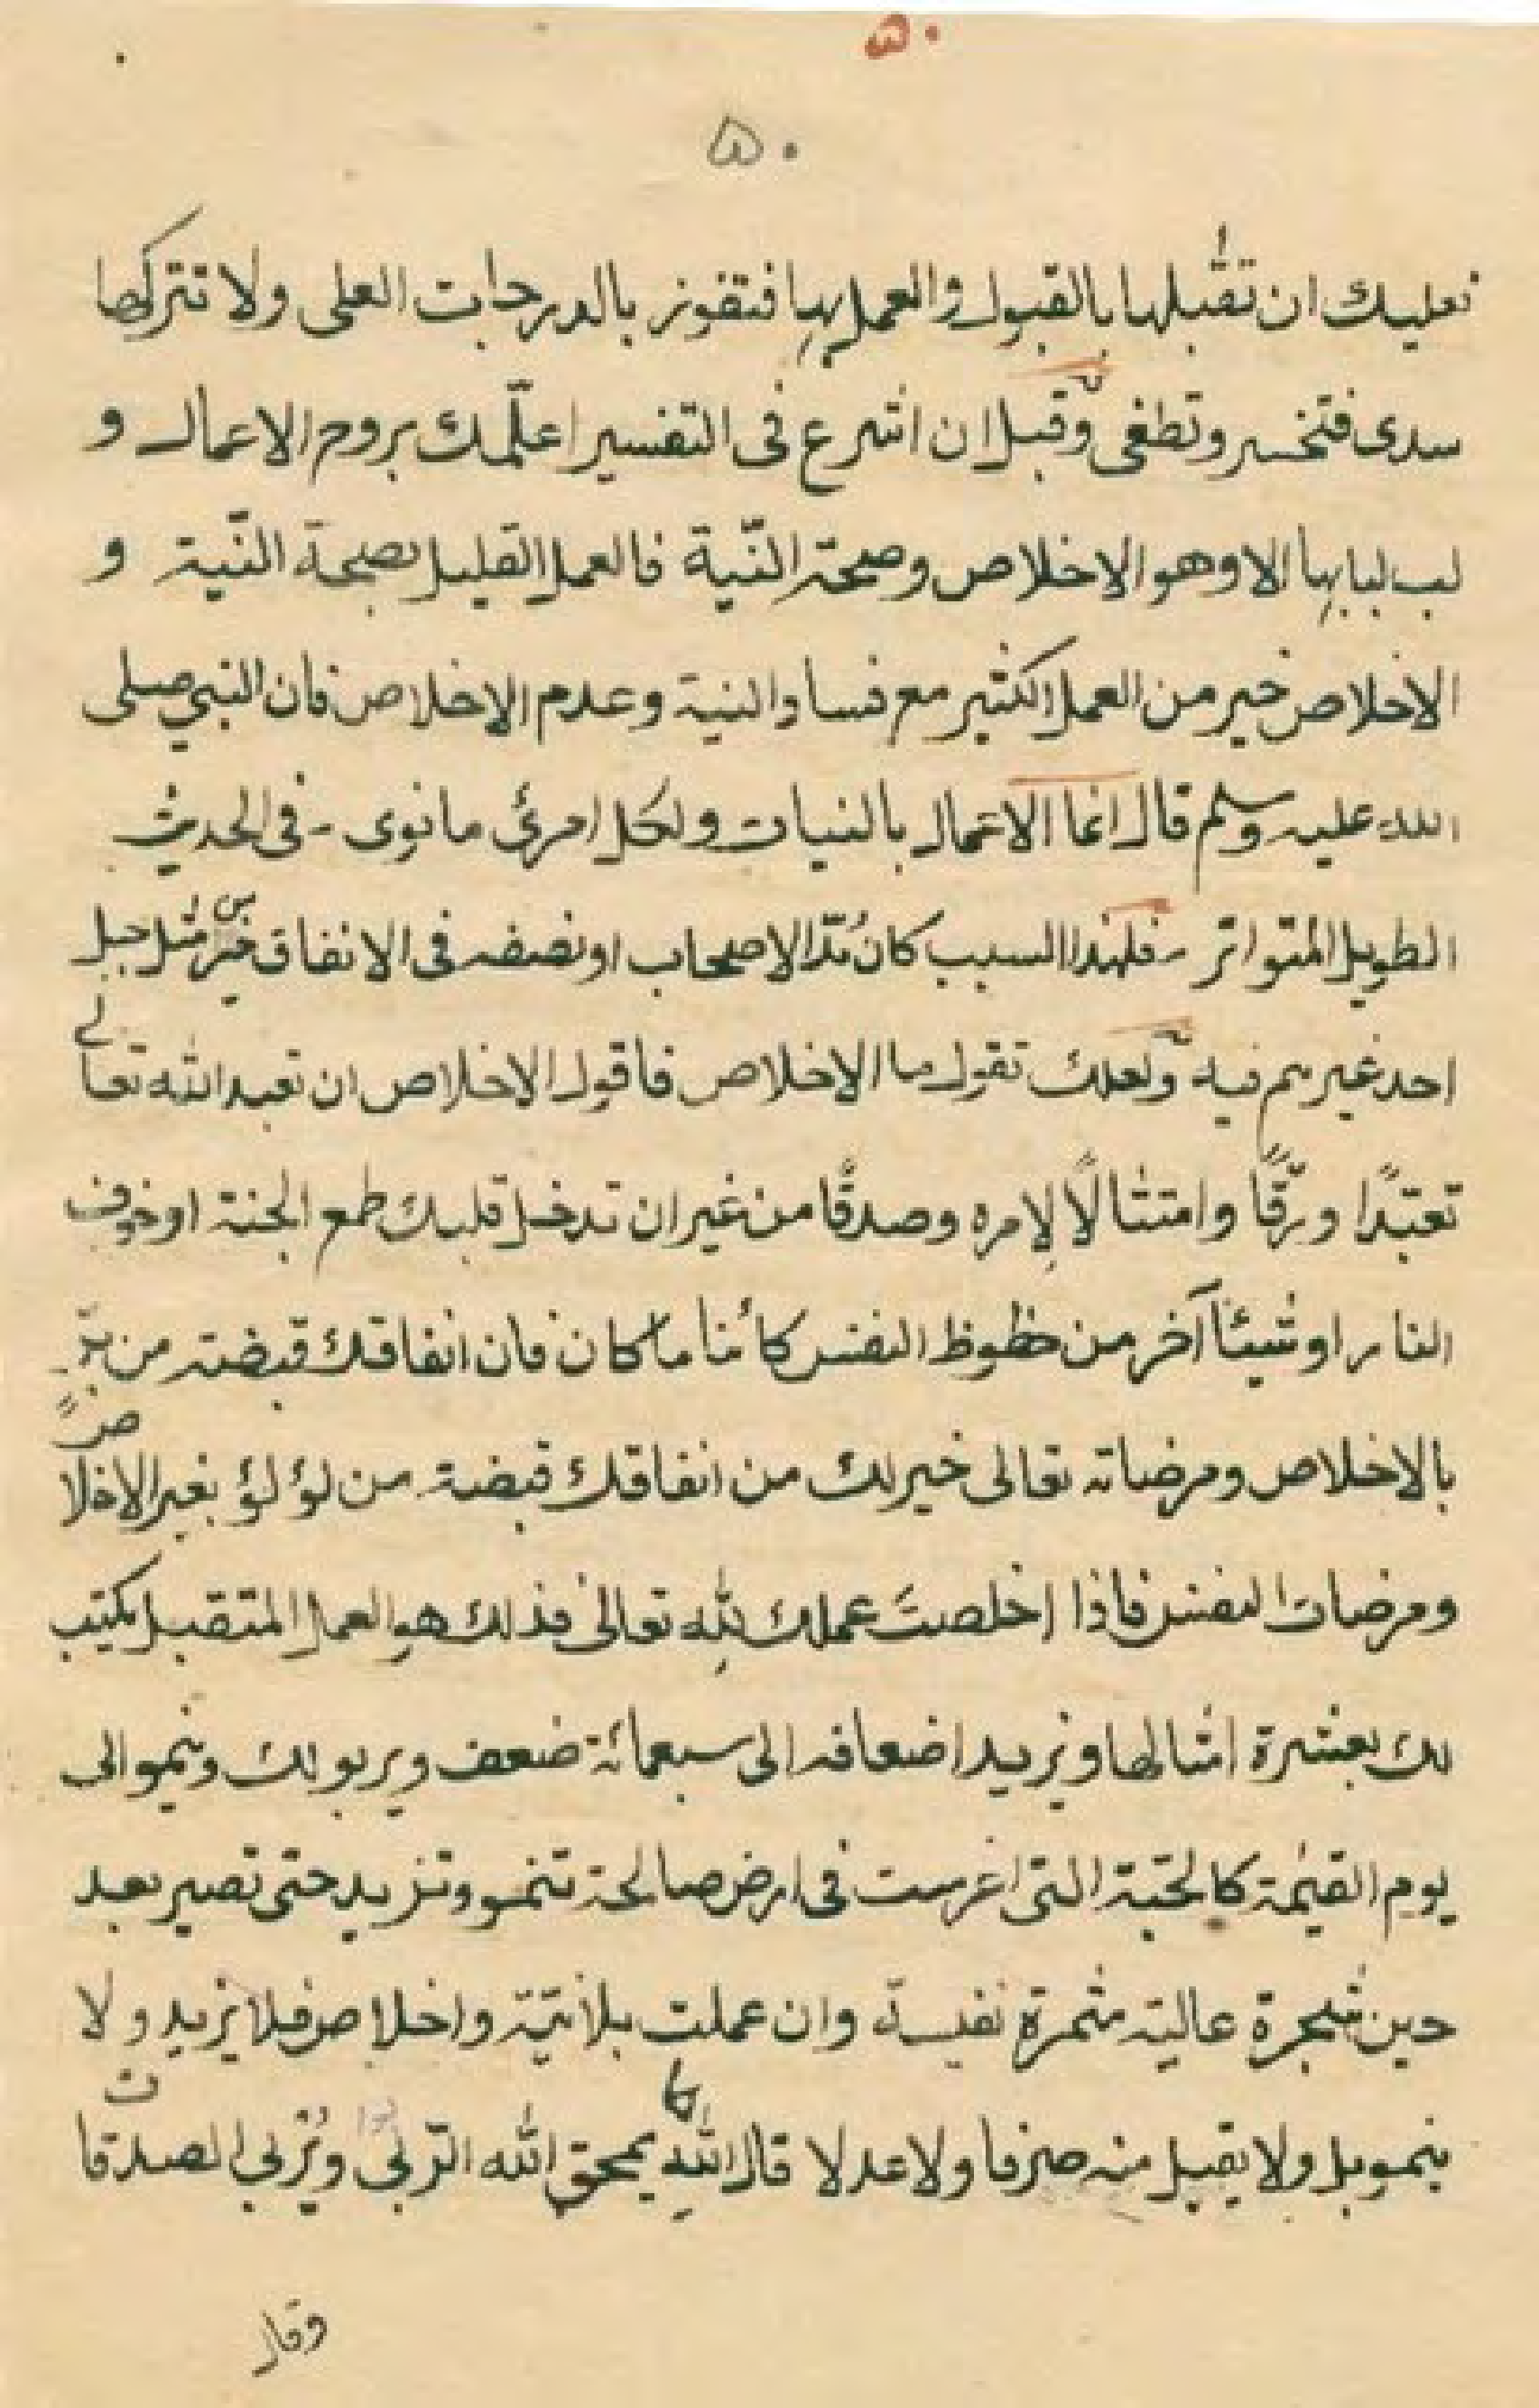 ۵۰
۵۰
فعليك ان تقبلها بالقبول والعمل بها فتفوز بالدرجات العلى ولا تتركها
سدى فتخسر وتطغى وقبل ان اشرع فى التفسير اعلّمك بروح الاعمال و
لب لبابها الا وهو الاخلاص وصحة النّية فالعمل القليل بصحة النّية و
الاخلاص خير من العمل الكثير مع فساد النية وعدم الاخلاص فان النبي صلى
الله عليه وسلم قال انما الاعمال بالنيات ولكل امرئ ما نوى - فى الحديث
الطويل المتواتر - فلهذا السبب كان مُدّ الاصحاب او نصفه فى الانفاق خير من مثل جبل
احد غيرهم فيه ولعلك تقول ما الاخلاص فاقول الاخلاص ان تعبد الله تعالى
تعبّدًا ورِقًّا وامتثالًا لِامره وصدقًا من غير ان تدخل قلبك طمع الجنة او خوف
النار او شيئاً آخر من حظوظ النفس كائنا ما كان فان انفاقك قبضة من برّ
بالاخلاص ومرضاته تعالى خير لك من انفاقك قبضة من لؤلؤ بغير الاخلاص
ومرضات النفس فاذا اخلصتَ عملك لله تعالى فذلك هو العمل المتقبل يكتب
لك بعشرة امثالها ويزيد اضعافه الى سبعمائة ضعف ويربو لك وينمو الى
يوم القيٰمة كالحَبّة التى اغرست فى ارض صالحة تنمو وتزيد حتى تصير بعد
حين شجرة عالية مثمرة نفيسة وان عملت بلا نيّة واخلاص فلا يزيد ولا
ينمو بل ولا يقبل منه صرفا ولا عدلا كما قال الله يمحق الله الرّبٰى ويُرْبي الصدقات
وقال